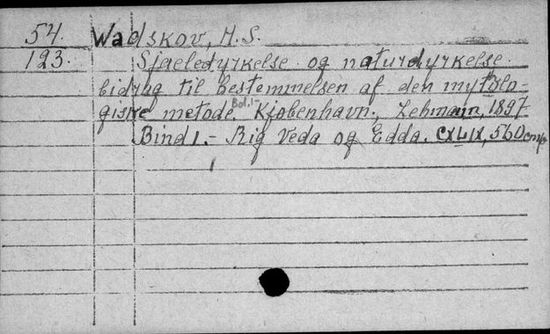 54. Wadskov, H.S.
123. Sjaeledyrkelse og naturdyrkelse
bidrag til bestemmelsen af den mytolo-
giske metode. Bd.1- Kjøbenhavn, Lehmann, 1897
Bind 1.- Rig Veda og Edda. CXLIX, 560